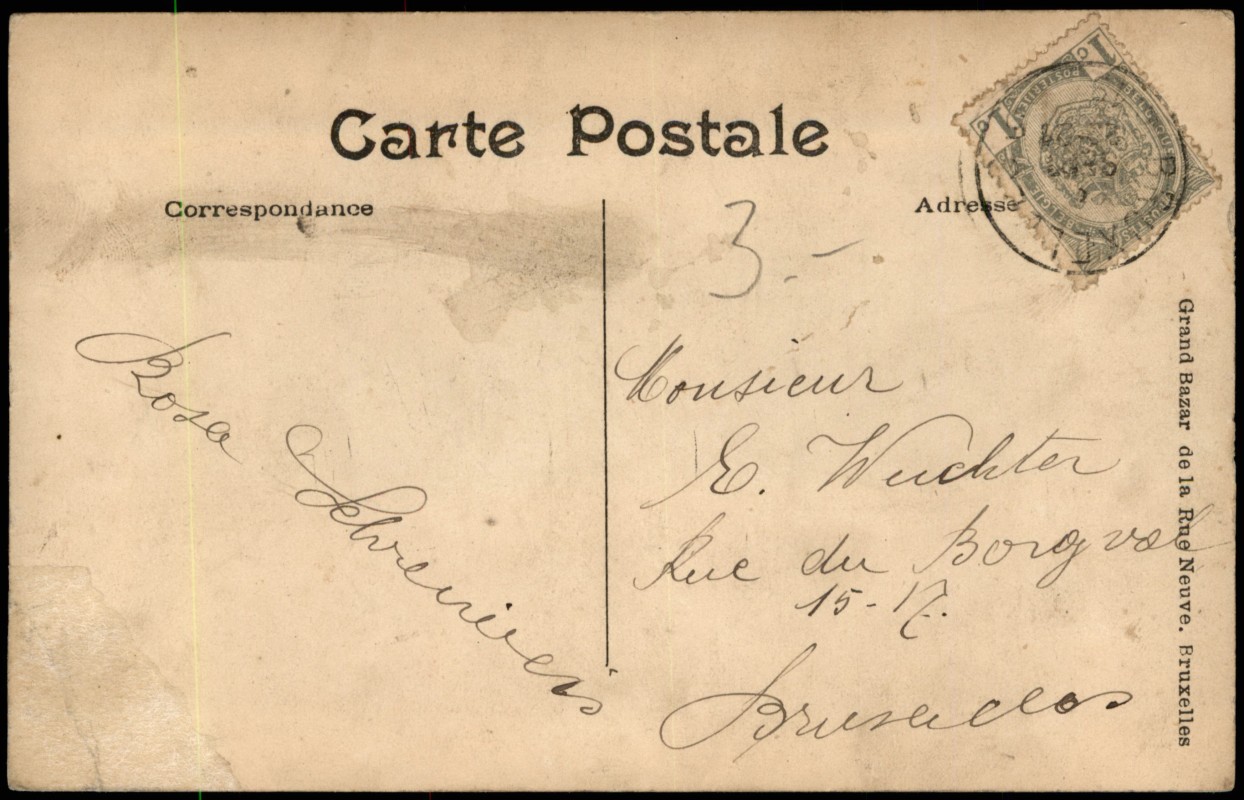 Carte Postale
Correspondance
Adresse
3.-
Rosa
Monsieur
E. Wuchter
Rue du Borgval
15-17.
Bruxelles
Grand Bazar de la Rue Neuve. Bruxelles